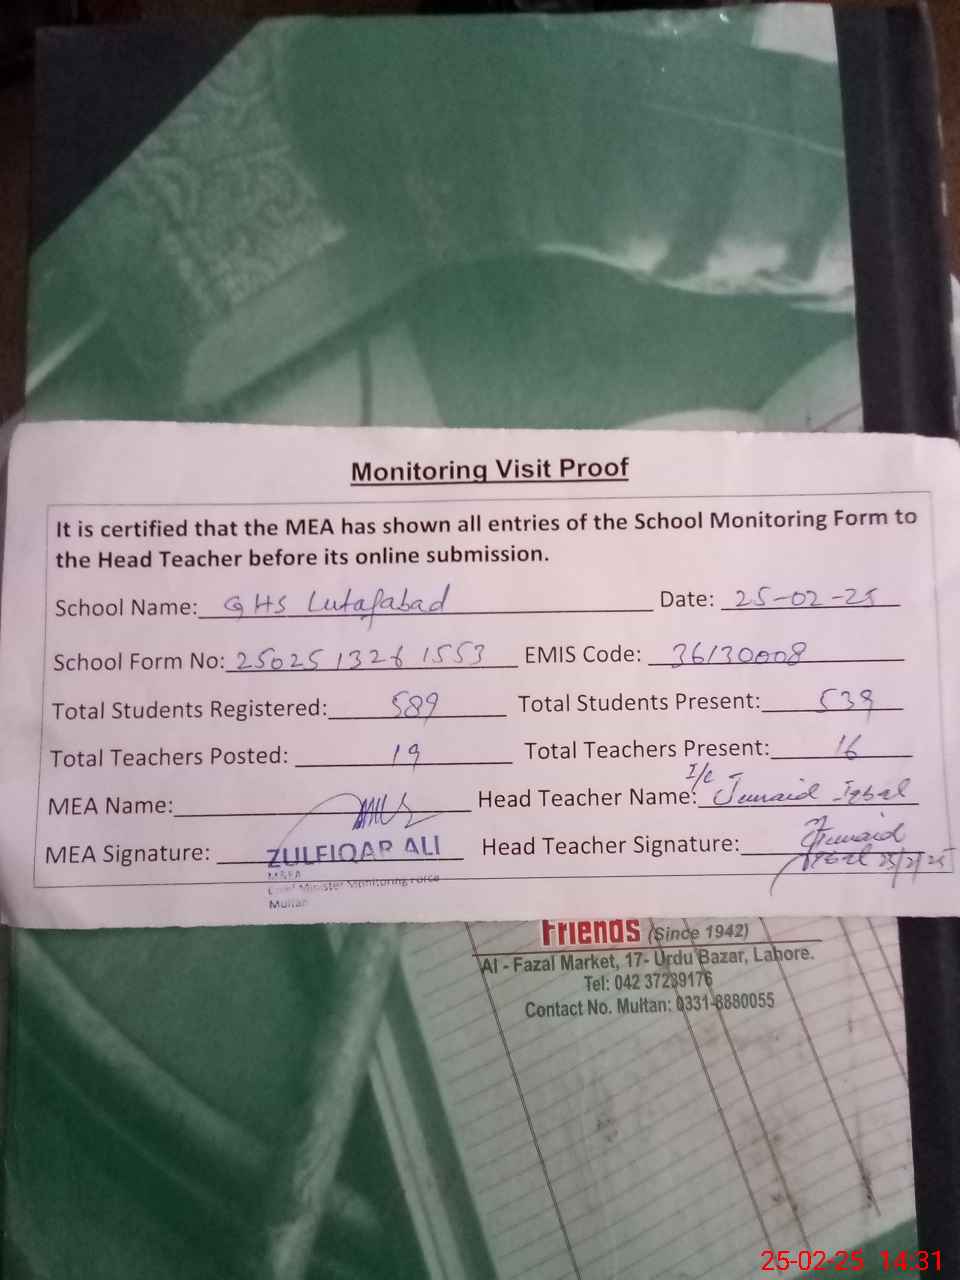 Monitoring Visit Proof
It is certified that the MEA has shown all entries of the School Monitoring Form to
the Head Teacher before its online submission.
School Name: GHS Lutafabad Date: 25-02-25
School Form No: 250251326 1553 EMIS Code: 36130008
Total Students Registered: 589 Total Students Present: 539
Total Teachers Posted: 19 Total Teachers Present: 16
MEA Name: Head Teacher Name: I/c Junaid Iqbal
MEA Signature: ZULFIQAR ALI Head Teacher Signature: Junaid Iqbal 25/2/25
M&EA
Chief Minister Monitoring Force
Multan
Friends (Since 1942)
Al - Fazal Market, 17- Urdu Bazar, Lahore.
Tel: 042 37239176
Contact No. Multan: 0331-8880055
25-02-25 14:31